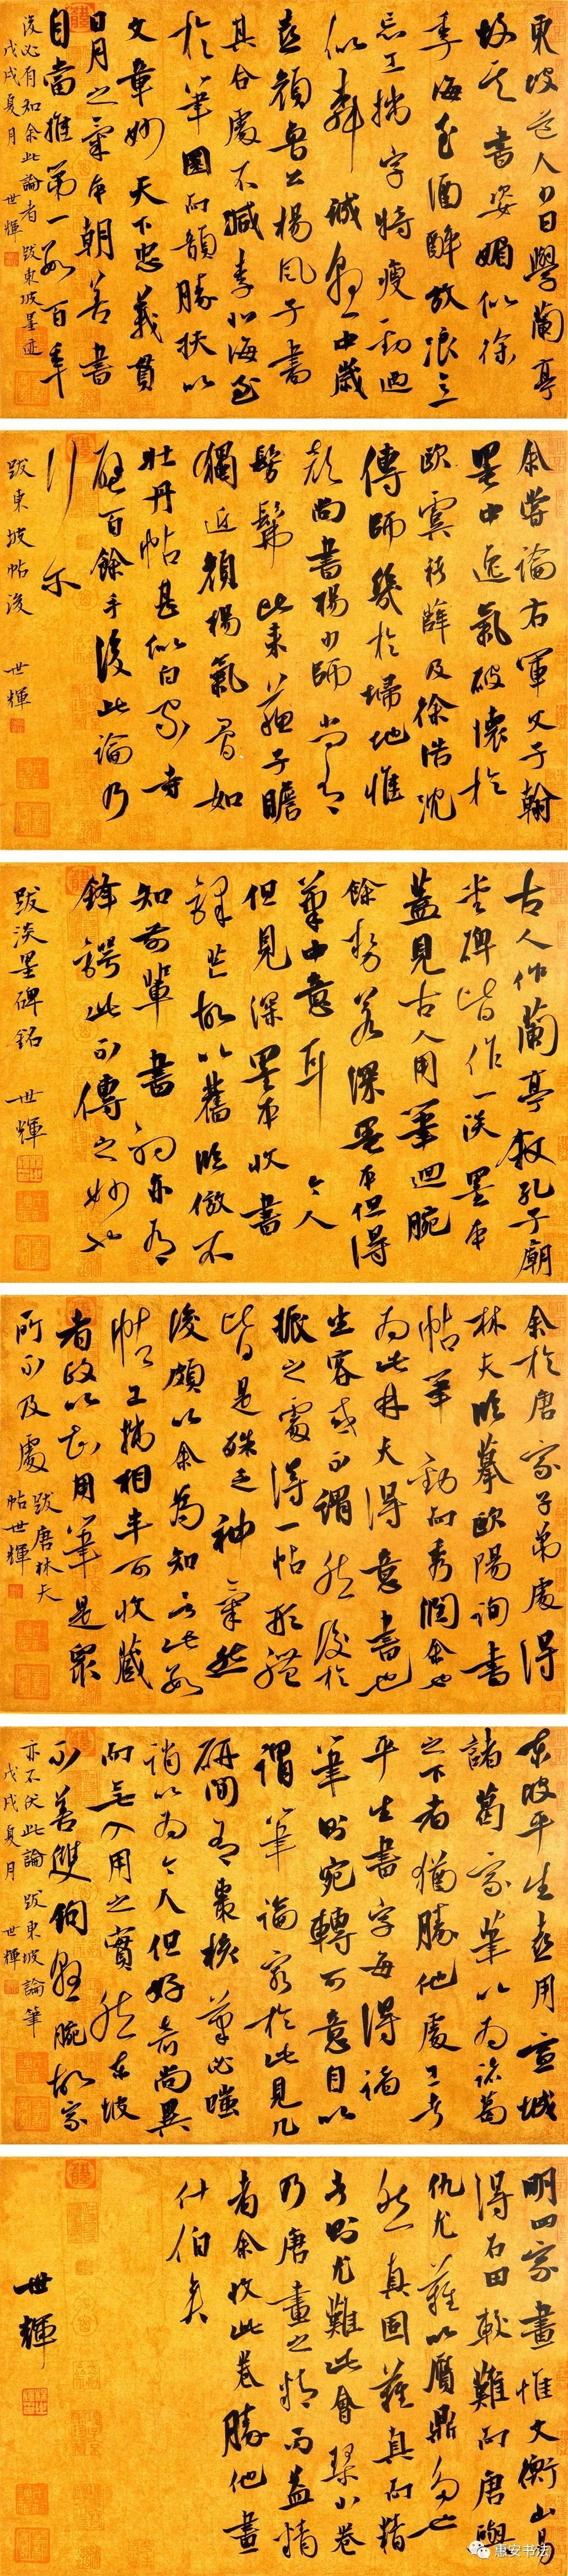 東坡道人少日學蘭亭
故其書姿媚似徐
季海至酒醉放浪意
忘工拙字特瘦勁迺
似柳誠懸中歲
喜顏魯公楊風子書
其合處不減李北海至
於筆圜而韻勝挾以
文章妙天下忠義貫
日月之氣本朝善書
自當推第一數百年
後必有知余此論者 跋東坡墨迹
戊戌夏月 世輝
余嘗論右軍父子翰
墨中逸氣破壞於
歐虞褚薛及徐浩沈
傳師幾於掃地惟
顏尚書楊少師尚有
髣髴比來蘇子瞻
獨近顏楊氣骨如
牡丹帖甚似白家寺
壁百餘年後此論乃
行尔
跋東坡帖後 世輝
古人作蘭亭敘孔子廟
堂碑皆作一淡墨本
蓋見古人用筆迴腕
餘勢若深墨本但得
筆中意耳今人
但見深墨本收書
鋒芒故以舊臨倣不
知前輩書初亦有
鋒鍔此不傳之妙也
跋淡墨碑銘 世輝
余於唐家子弟處得
林夫臨摹歐陽詢書
帖筆勁而秀潤余
為此林夫得意書也
坐客或不謂然後於
振之處得一帖形體
皆是殊乏神氣然
後頗以余為知言此數
帖工拙相半而收藏
者改以知用筆是衆
所不及處 跋唐林夫
帖世輝
東坡平生喜用宣城
諸葛家筆以為諸葛
之下者猶勝他處工者
平生書字每得諸
筆則宛轉可意自以
謂筆論窮於此見几
研間有棗核筆必嗤
誚以為今人但好奇尚異
而無入用之實然東坡
不善雙鉤懸腕故家
亦不伏此論 跋東坡論筆
戊戌夏月 世輝
明四家畫惟文衡山易
得石田較難而唐與
仇尤難以贋鼎多也
然真固難真而精
者則尤難此會琴小卷
乃唐畫之精而益精
者余收此卷勝他畫
什伯矣
世輝
惠安书法